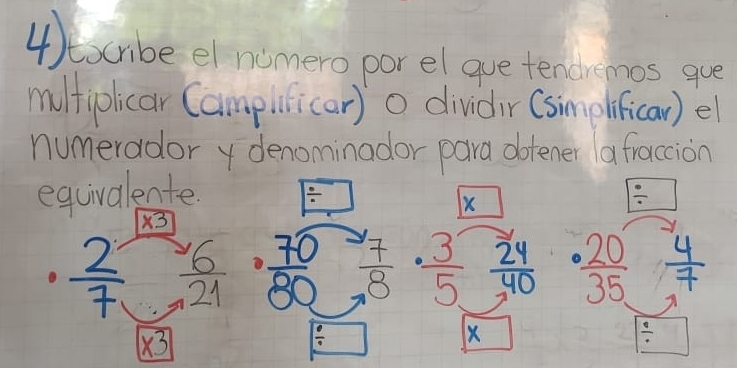 4) Escribe el número por el que tendremos que
multiplicar (amplificar) o dividir (simplificar) el
numerador y denominador para obtener la fracción
equivalente.
x3 ÷ x ÷
• 2/7 6/21 • 70/80 7/8 • 3/5 24/40 • 20/35 4/7
x3 ÷ x ÷